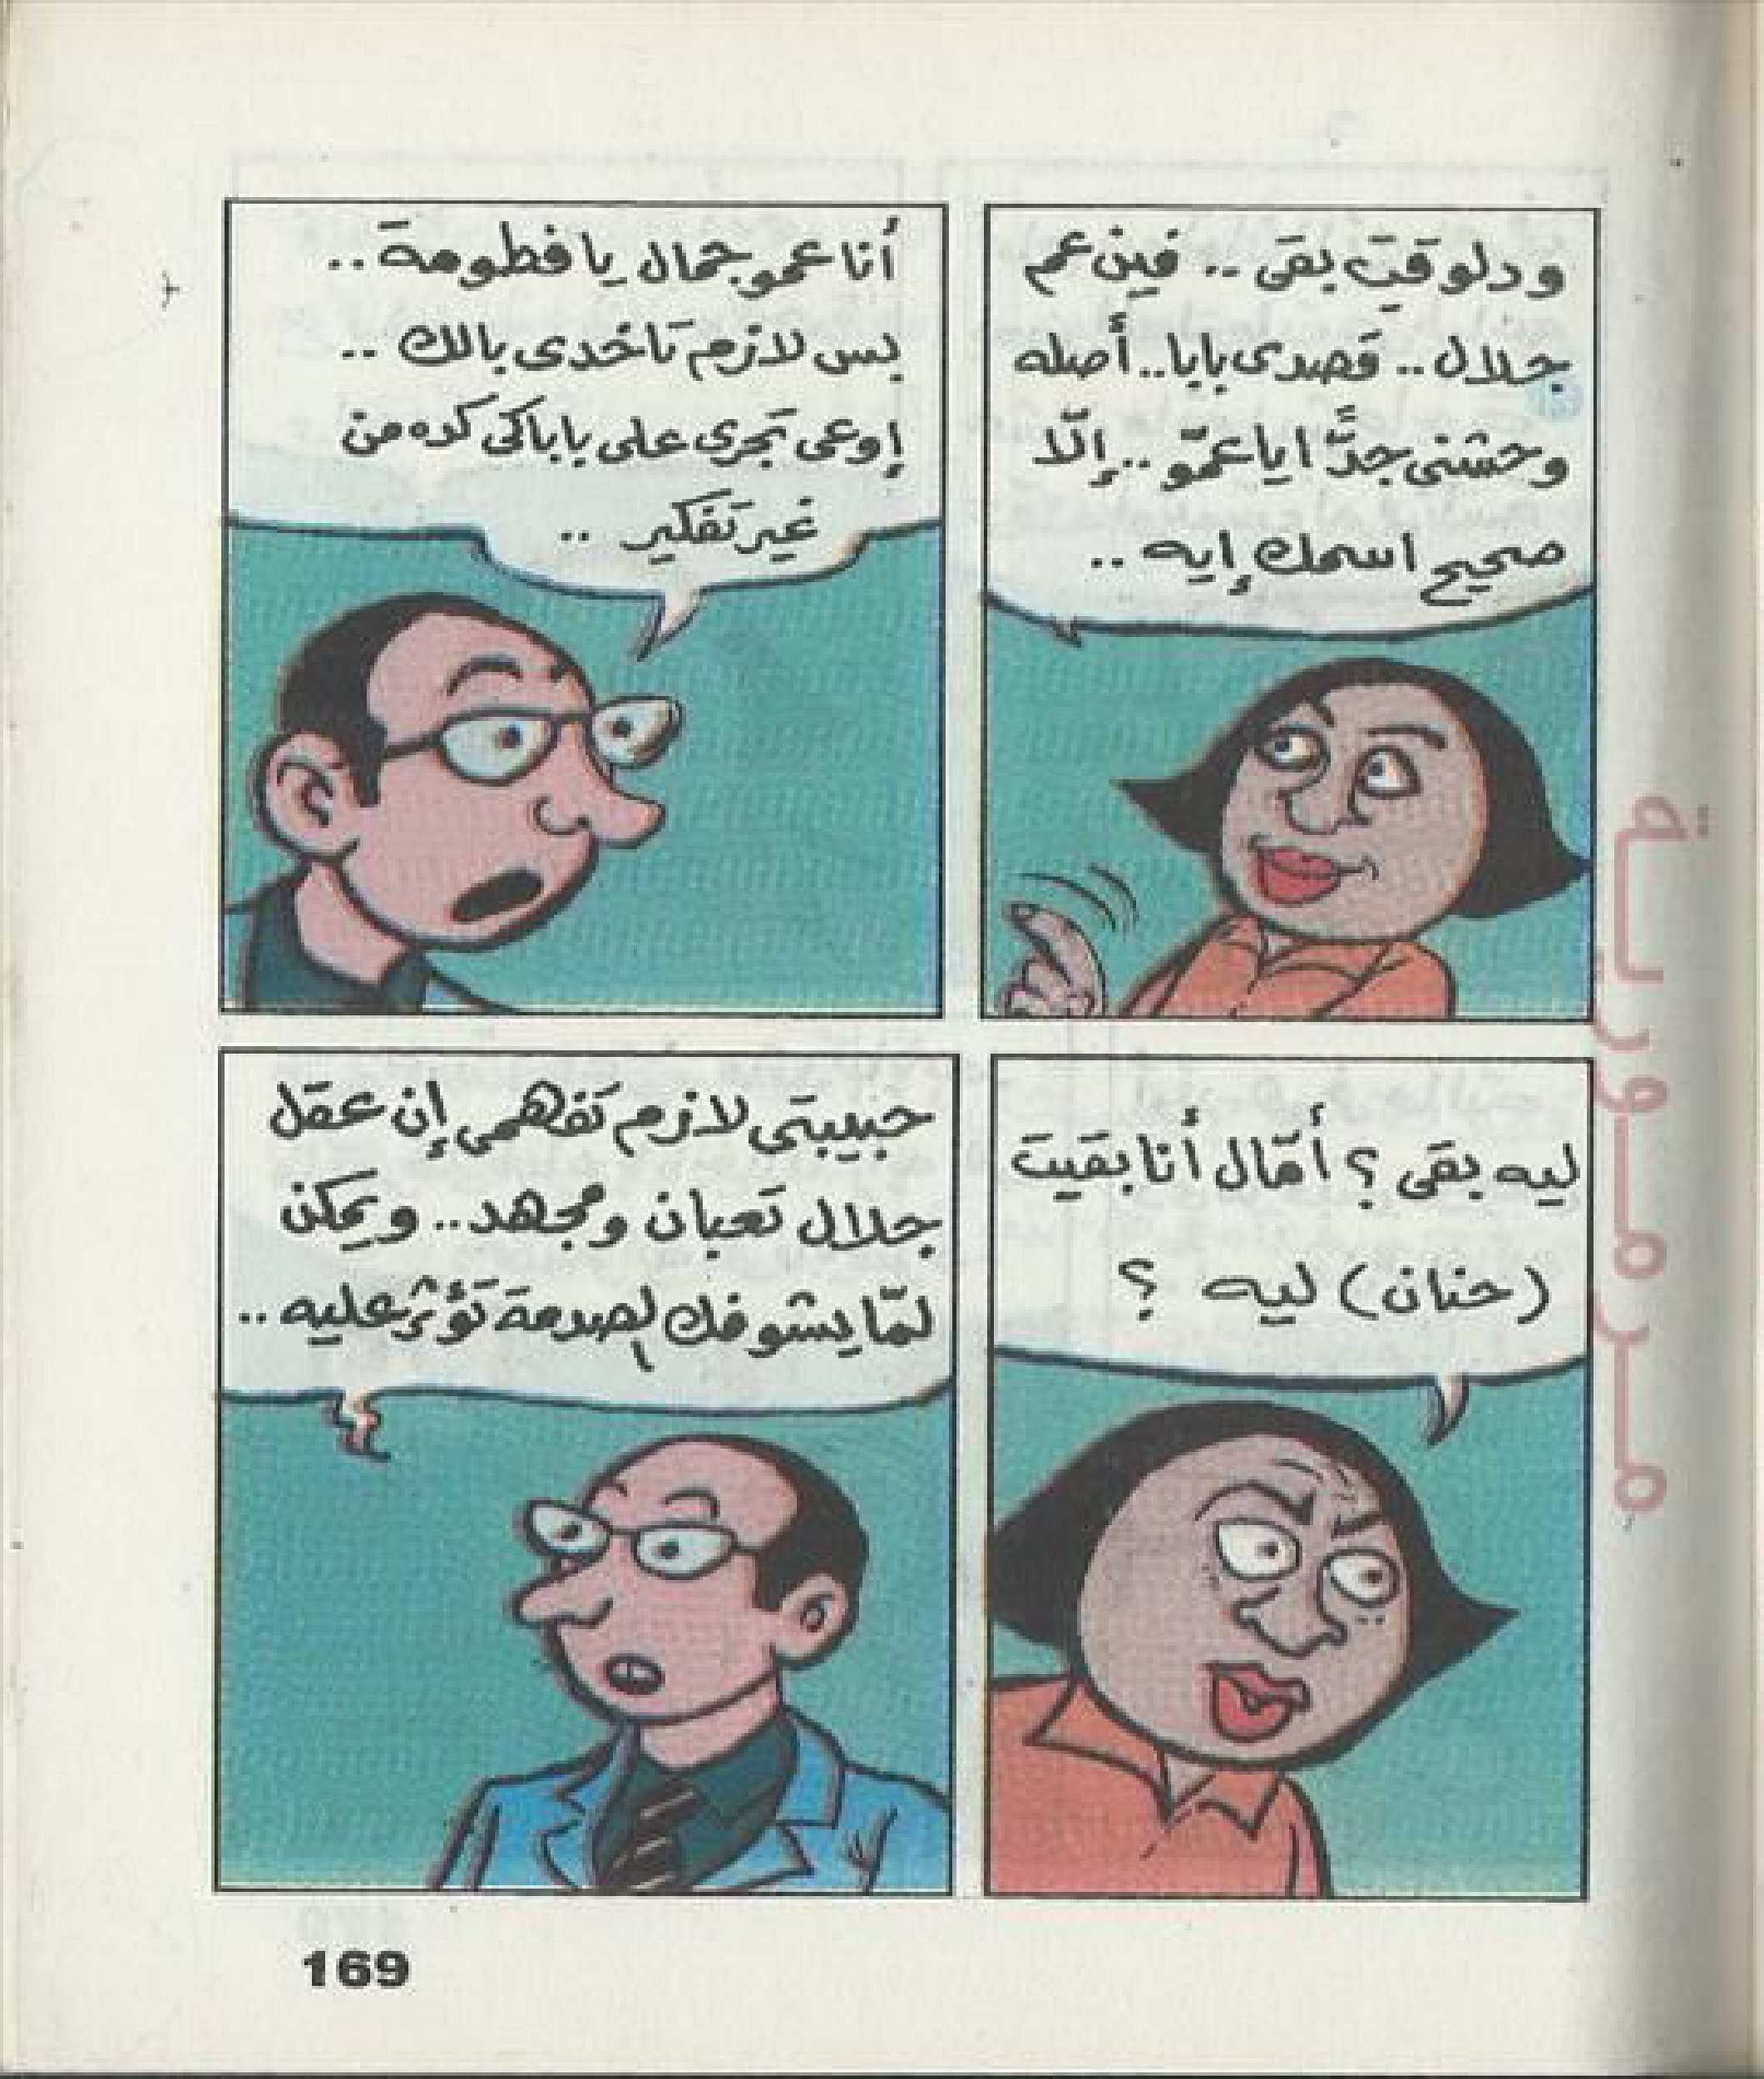 ودلوقتِ بقى .. فين عم
جلال .. قصدى بابا .. أصله
وحشنى جدًّا ياعمّو .. إلّا
صحيح اسمك إيه ..
أنا عمو جمال يا فطومة ..
بس لازم تاخدى بالك ..
إوعى تجرى على باباكى كده من
غير تفكير ..
ليه بقى ؟ أمّال أنا بقيت
(حنان) ليه ؟
حبيبتى لازم تفهمى إن عقل
جلال تعبان ومجهد .. ويمكن
لمّا يشوفك الصدمة تؤثر عليه ..
مرمورية
169